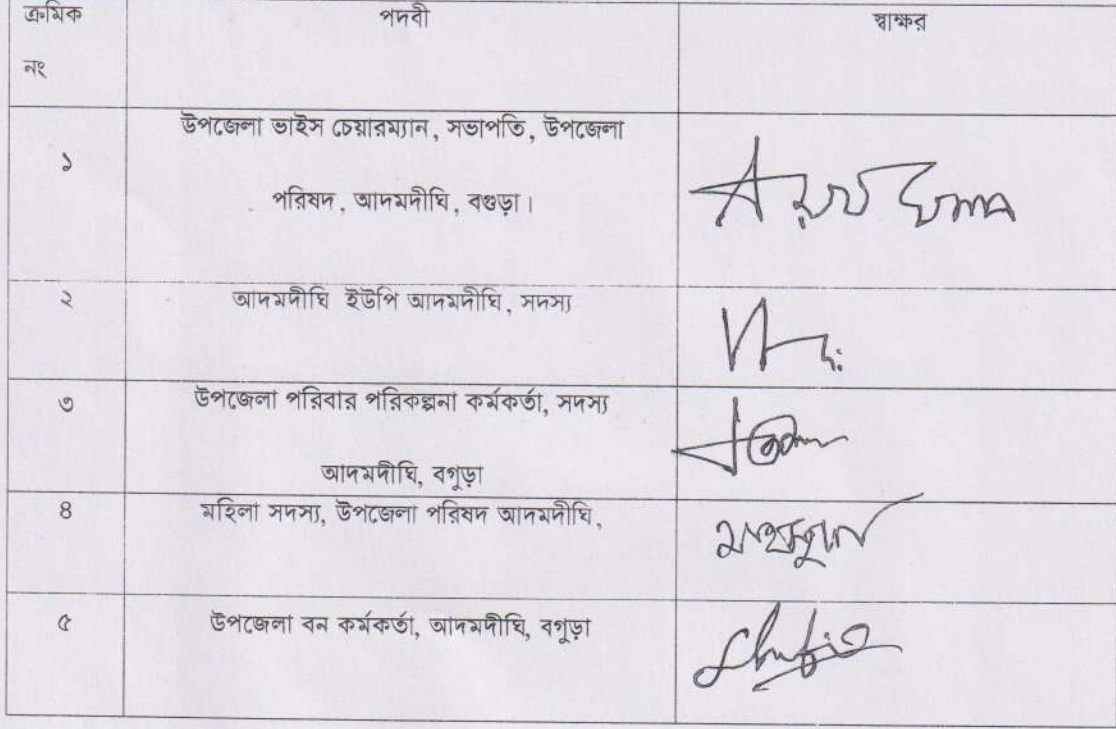 ক্রমিক পদবী স্বাক্ষর
নং
উপজেলা ভাইস চেয়ারম্যান, সভাপতি, উপজেলা
১
পরিষদ, আদমদীঘি, বগুড়া।
২ আদমদীঘি ইউপি আদমদীঘি, সদস্য
৩ উপজেলা পরিবার পরিকল্পনা কর্মকর্তা, সদস্য
আদমদীঘি, বগুড়া
৪ মহিলা সদস্য, উপজেলা পরিষদ আদমদীঘি,
৫ উপজেলা বন কর্মকর্তা, আদমদীঘি, বগুড়া